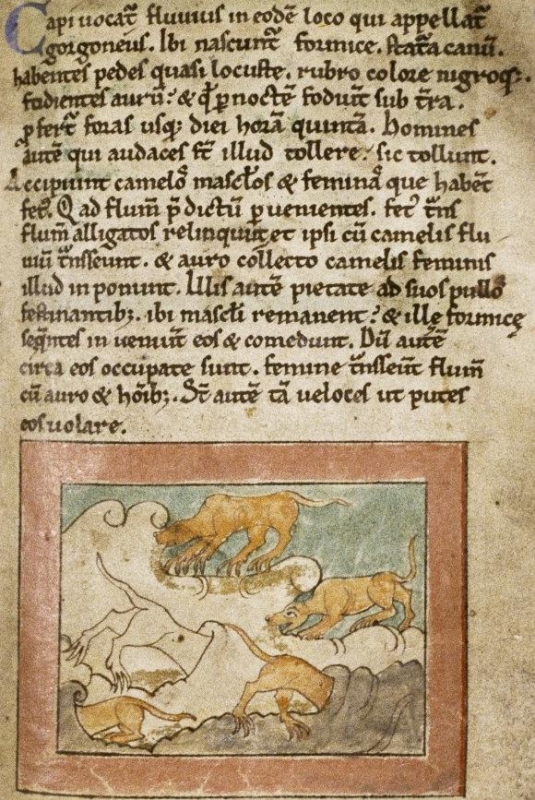 Capi uocat᷑ fluuius in eodē loco qui appellat᷑
gorgoneus. Ibi nascunt᷑ formice. statᷓa canū.
habentes pedes quasi locuste. rubro colore nigroq;.
fodientes aurū. & qd̄ p noctē fodiūt sub t̄ra.
ꝓfert᷑ foras usq; diei horā quintā. Homines
autē qui audaces st̄ illud tollere. sic tollunt.
Accipiunt camelos masclos & feminas que habēt
fet᷒. Ad flum̄ p̄dictū ꝑuenientes. fet᷒ t̄ns
flum̄ alligatos relinquūt et ipsi cū camelis flu
uiū t̄nsseunt. & auro collecto camelis feminis
illud inponunt. Illis autē pietate ad suos pullos
festinantib;. ibi mascli remanent. & ille formicę
seq̄ntes inueniūt eos & comedunt. Dū autē
circa eos occupate sunt. femine t̄nsseūt flum̄
cū auro & hōib;. St̄ autē tā ueloces ut putes
eos uolare.